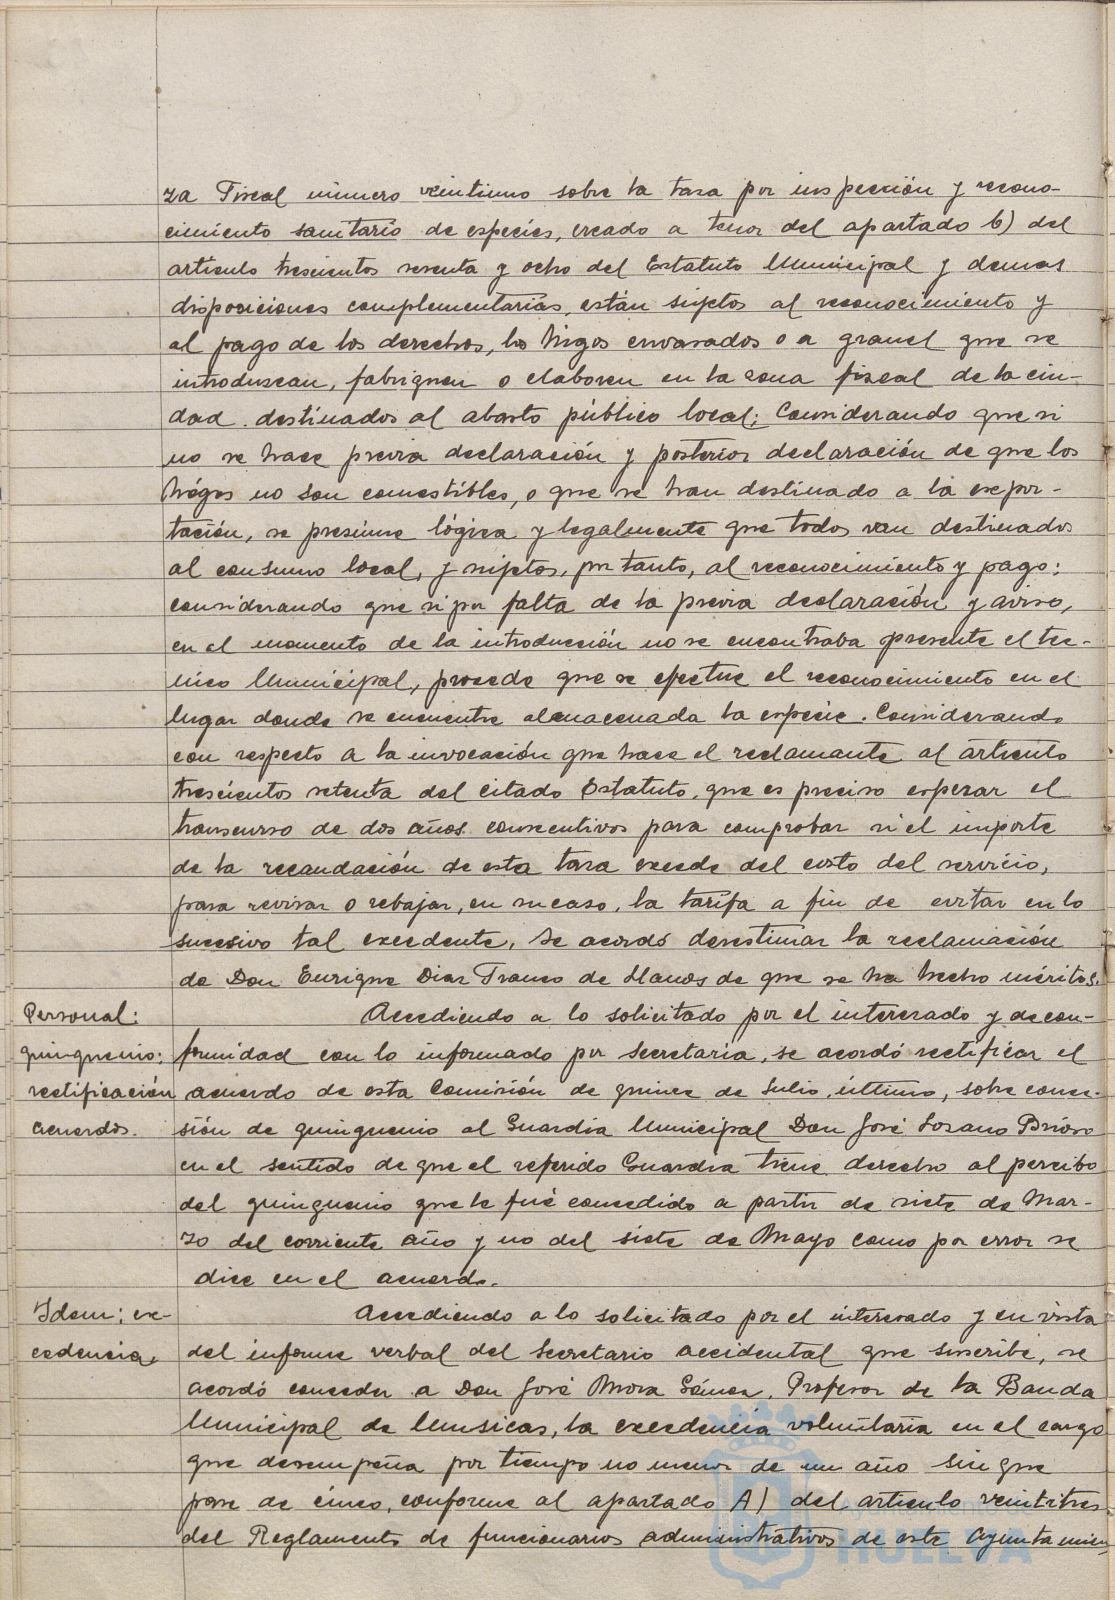 za Fiscal número veintiuno sobre la tasa por inspección y recono-
cimiento sanitario de especies, creado a tenor del apartado b) del
artículo trescientos sesenta y ocho del Estatuto Municipal y demas
disposiciones complementarias, están sujetos al reconocimiento y
al pago de los derechos, los higos envasados o a granel que se
introduzcan, fabriquen o elaboren en la zona fiscal de la ciu-
dad destinados al abasto público local; Considerando que si
no se hace previa declaración y posterior declaración de que los
higos no son comestibles, o que se han destinado a la expor-
tación, se presume lógica y legalmente que todos van destinados
al consumo local, y sujetos, por tanto, al reconocimiento y pago:
considerando que si por falta de la previa declaración y aviso,
en el momento de la introducción no se encontraba presente el tec-
nico Municipal, procede que se efectue el reconocimiento en el
lugar donde se encuentre almacenada la especie. Considerando
con respecto a la invocación que hace el reclamante al artículo
trescientos setenta del citado Estatuto, que es preciso esperar el
transcurso de dos años consecutivos para comprobar si el importe
de la recaudación de esta tasa excede del costo del servicio,
para revisar o rebajar, en su caso, la tarifa a fin de evitar en lo
sucesivo tal excedente, se acordó desestimar la reclamación
de Don Enrique Diaz Franco de Llanos de que se ha hecho méritos.
Personal:
quinquenio;
rectificación
acuerdos.
Accediendo a lo solicitado por el interesado y de con-
formidad con lo informado por Secretaria, se acordó rectificar el
acuerdo de esta Comisión de quince de Julio último, sobre conce-
sión de quinquenio al Guardia Municipal Don José Lozano Brioso
en el sentido de que el referido Guardia tiene derecho al percibo
del quinquenio que le fué concedido a partir de siete de Mar-
zo del corriente año y no del siete de Mayo como por error se
dice en el acuerdo.
Idem; ex-
cedencia.
Accediendo a lo solicitado por el interesado y en vista
del informe verbal del Secretario accidental que suscribe, se
acordó conceder a Don José Mora Gómez, Profesor de la Banda
Municipal de Musicas, la excedencia voluntaria en el cargo
que desempeña por tiempo no menor de un año sin que
pase de cinco, conforme al apartado A) del artículo veintitres
del Reglamento de funcionarios administrativos de este Ayuntamien
Ayuntamiento de
HUELVA